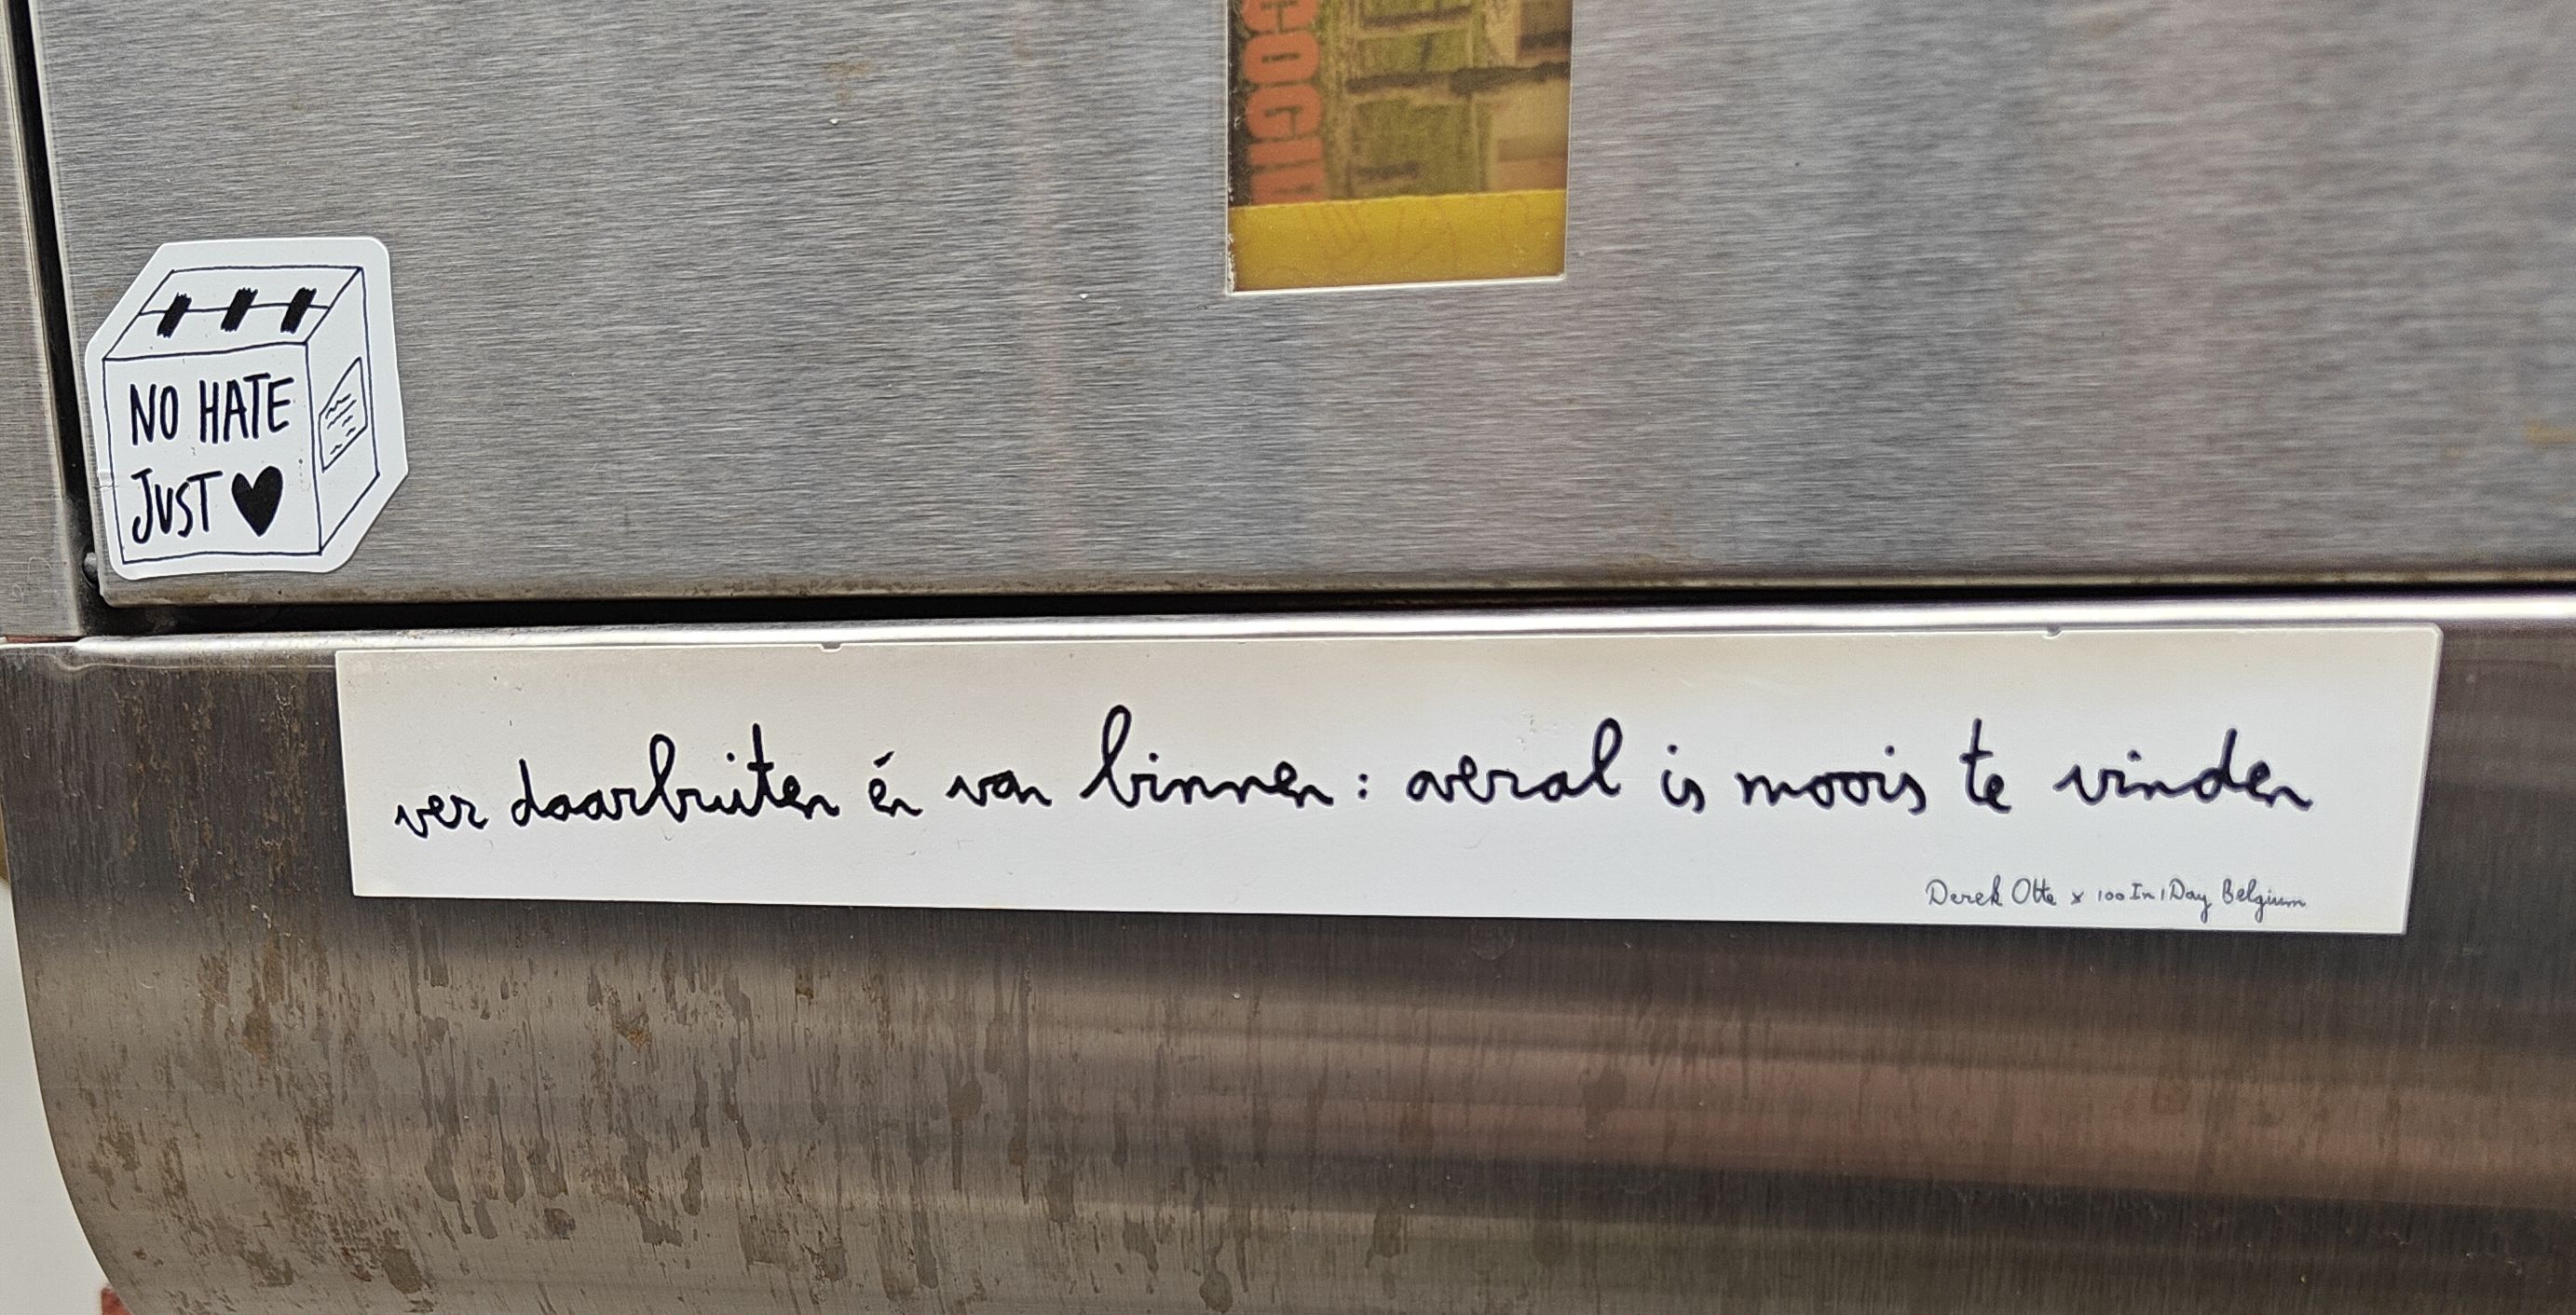 NO HATE
JUST ♥
ver daarbuiten én van binnen: overal is moois te vinden
Derek Otte x 100In1Day Belgium